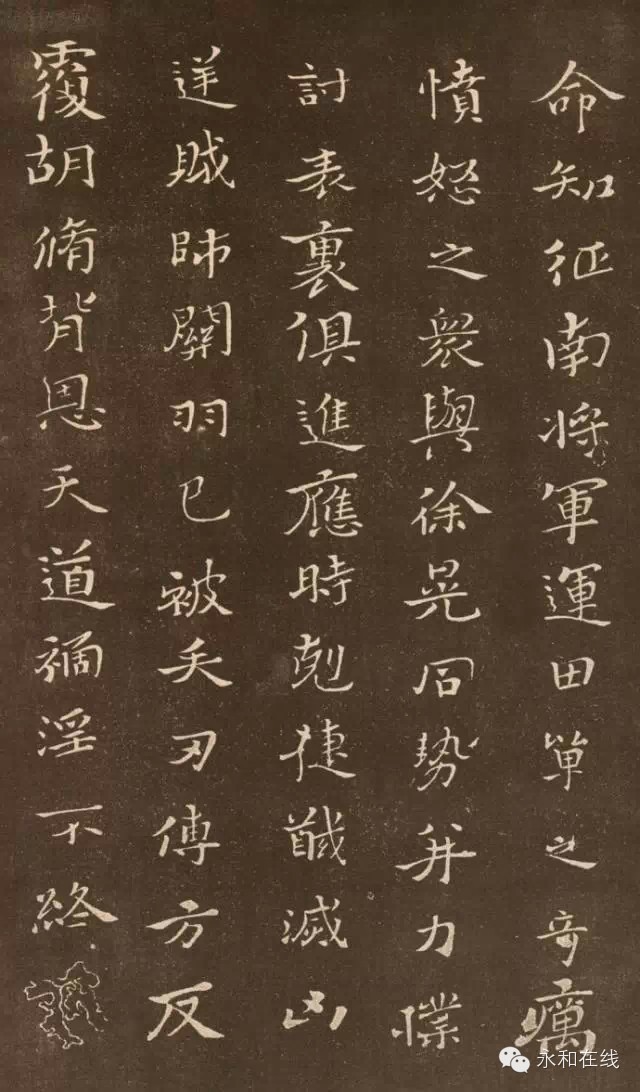 命知征南将軍運田單之奇厲
憤怒之衆與徐晃同勢并力撲
討表裏俱進應時剋捷馘滅凶
逆賊帥關羽已被矢刃傅方反
覆胡脩背恩天道禍淫不終
永和在线